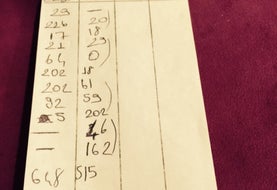 29 —
226 20
17 18
21 29
64 0
202 18
202 61
92 59
5 202
— 46
— 162
648 515